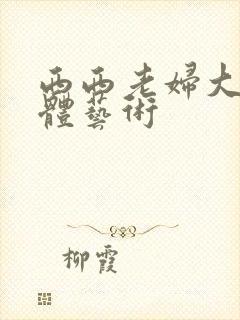 西西老婦大
體藝術
柳霞